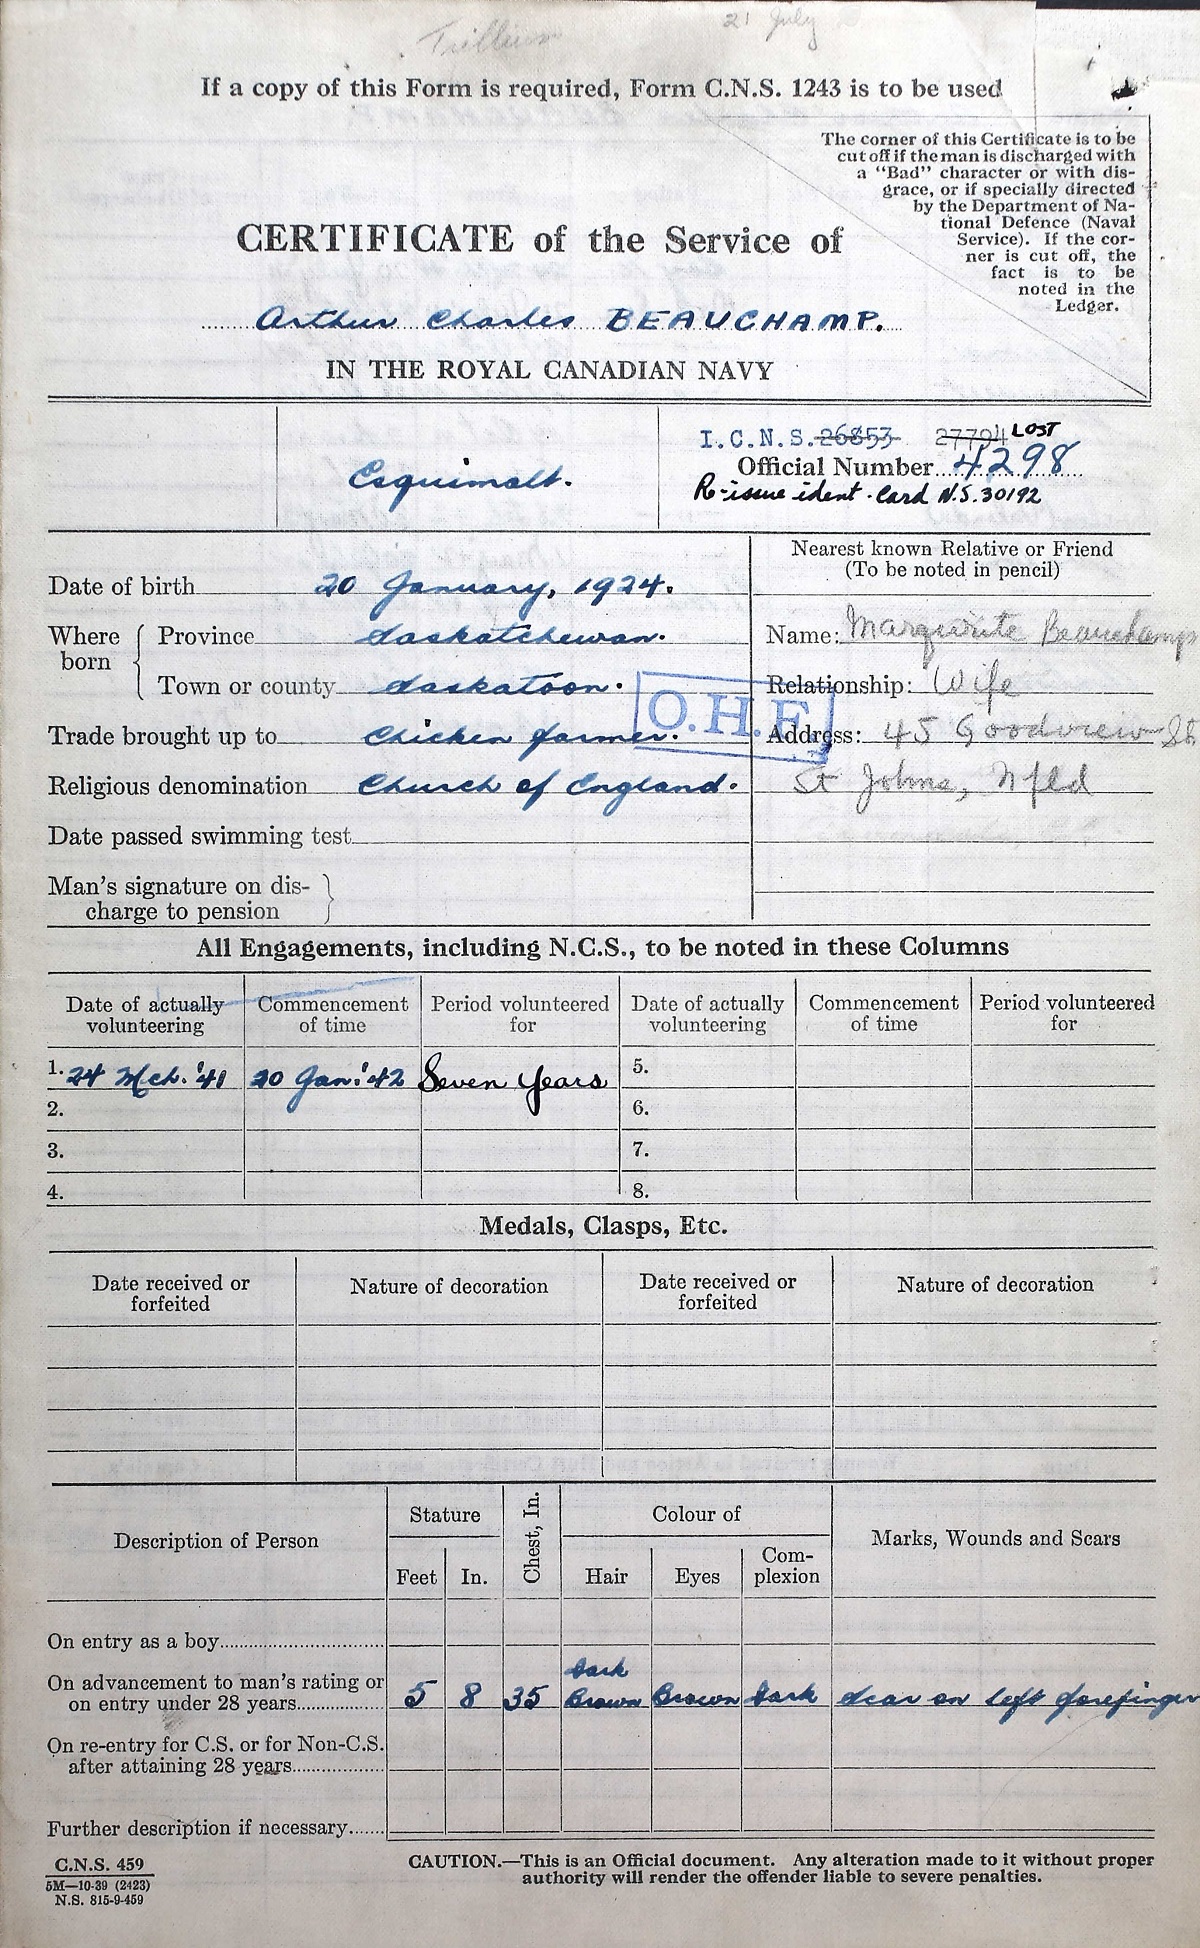 Trillium 21 July
If a copy of this Form is required, Form C.N.S. 1243 is to be used
The corner of this Certificate is to be
cut off if the man is discharged with
a "Bad" character or with dis-
grace, or if specially directed
by the Department of Na-
tional Defence (Naval
Service). If the cor-
ner is cut off, the
fact is to be
noted in the
Ledger.
CERTIFICATE of the Service of
Arthur Charles BEAUCHAMP.
IN THE ROYAL CANADIAN NAVY
Esquimalt.
I.C.N.S. 26853 27794 LOST
Official Number 4298
Re-issue ident. Card N.S. 30192
Nearest known Relative or Friend
(To be noted in pencil)
Date of birth 20 January, 1924.
Where born
Province Saskatchewan.
Town or county Saskatoon.
Trade brought up to Chicken farmer.
Religious denomination Church of England.
Date passed swimming test
Man's signature on dis-
charge to pension
O.H.F.
Name: Marguerite Beauchamps
Relationship: Wife
Address: 45 Goodview St
St Johns, Nfld
All Engagements, including N.C.S., to be noted in these Columns
Date of actually volunteering Commencement of time Period volunteered for Date of actually volunteering Commencement of time Period volunteered for
1. 24 Mch. '41 20 Jan. '42 Seven Years 5.
2. 6.
3. 7.
4. 8.
Medals, Clasps, Etc.
Date received or forfeited Nature of decoration Date received or forfeited Nature of decoration
Description of Person Stature Chest, In. Colour of Marks, Wounds and Scars
Feet In. Hair Eyes Com-
plexion
On entry as a boy
On advancement to man's rating or
on entry under 28 years 5 8 35 Dark Brown Brown Dark Scar on left forefinger
On re-entry for C.S. or for Non-C.S.
after attaining 28 years
Further description if necessary
C.N.S. 459
5M—10-39 (2423)
N.S. 815-9-459
CAUTION.—This is an Official document. Any alteration made to it without proper
authority will render the offender liable to severe penalties.